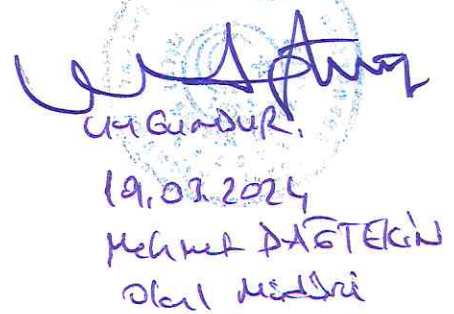 UYGUNDUR.
19.03.2024
Mehmet DAĞTEKİN
Okul Müdürü